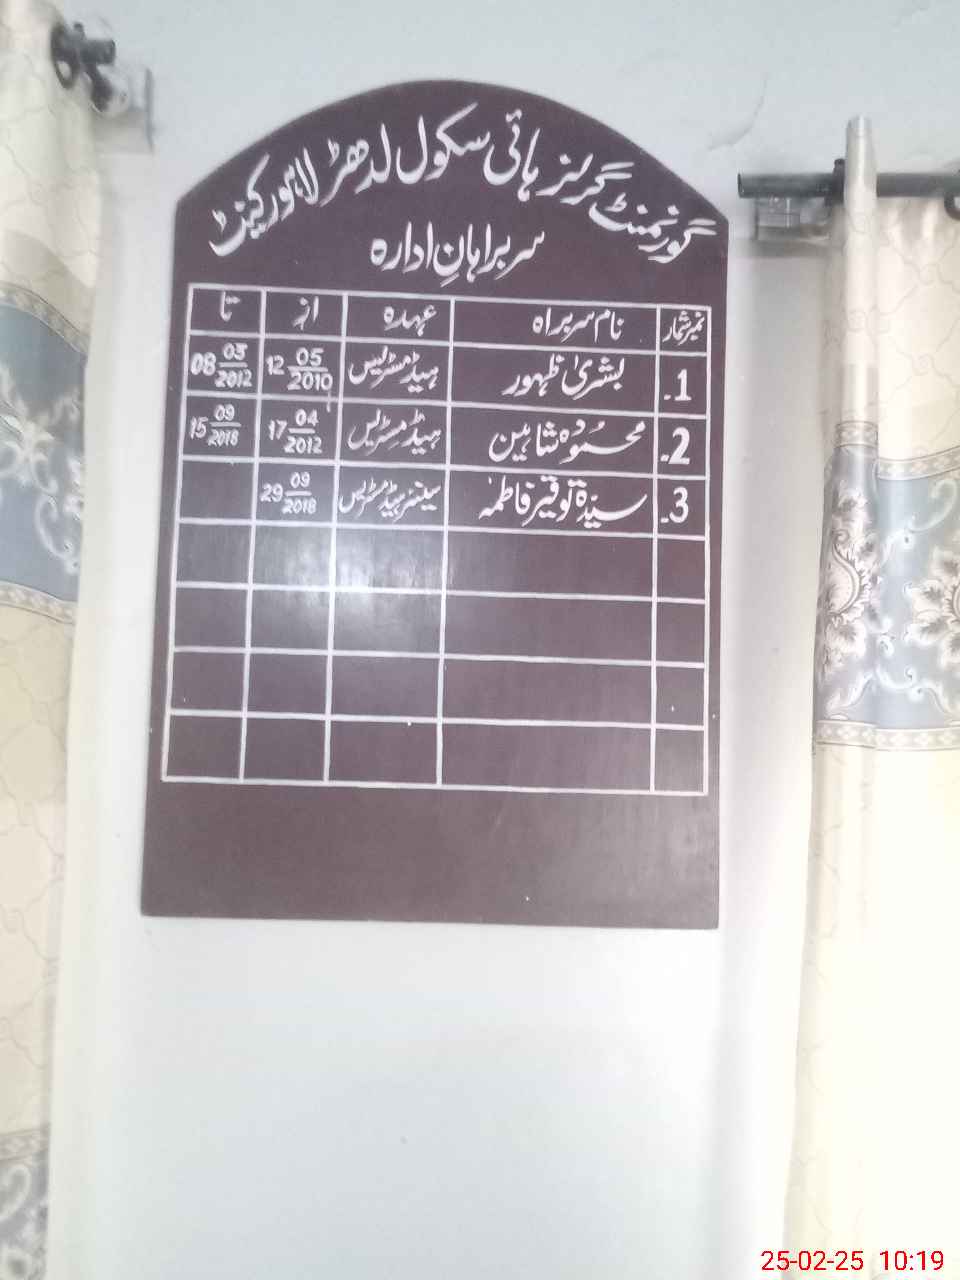 گورنمنٹ گرلز ہائی سکول لدھڑ لاہور کینٹ
سربراہانِ ادارہ
نمبر شمار نام سربراہ عہدہ از تا
1۔ بشریٰ ظہور ہیڈ مسٹریس 12 05/2010 08 03/2012
2۔ محمودہ شاہین ہیڈ مسٹریس 17 04/2012 15 09/2018
3۔ سیدۃ توقیر فاطمہ سینئر ہیڈ مسٹریس 29 09/2018
25-02-25 10:19